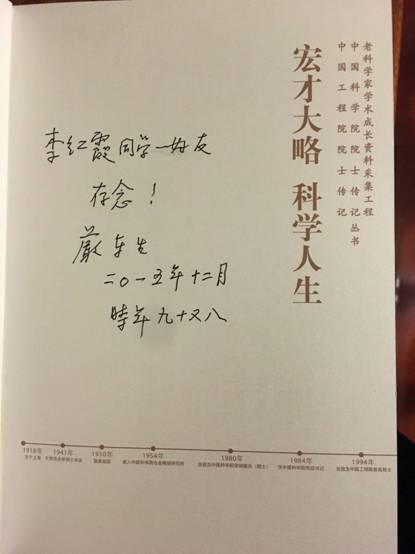 老科学家学术成长资料采集工程
中国科学院院士传记丛书
中国工程院院士传记
宏才大略 科学人生
李红霞同学—好友
存念！
严东生
二〇一五年十二月
时年九十又八
1918年
1941年
1950年
1954年
1980年
1984年
1994年
生于上海